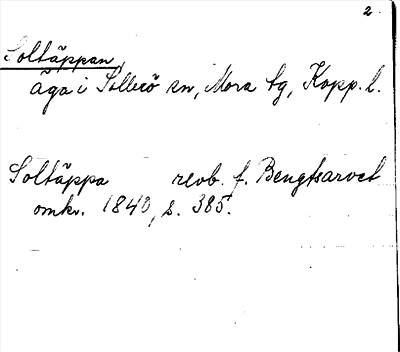 2.
Soltäppan,
äga i Sollerö sn, Mora tg, Kopp. l.
Soltäppa revb. f. Bengtsarvet
omkr. 1840, s. 385.